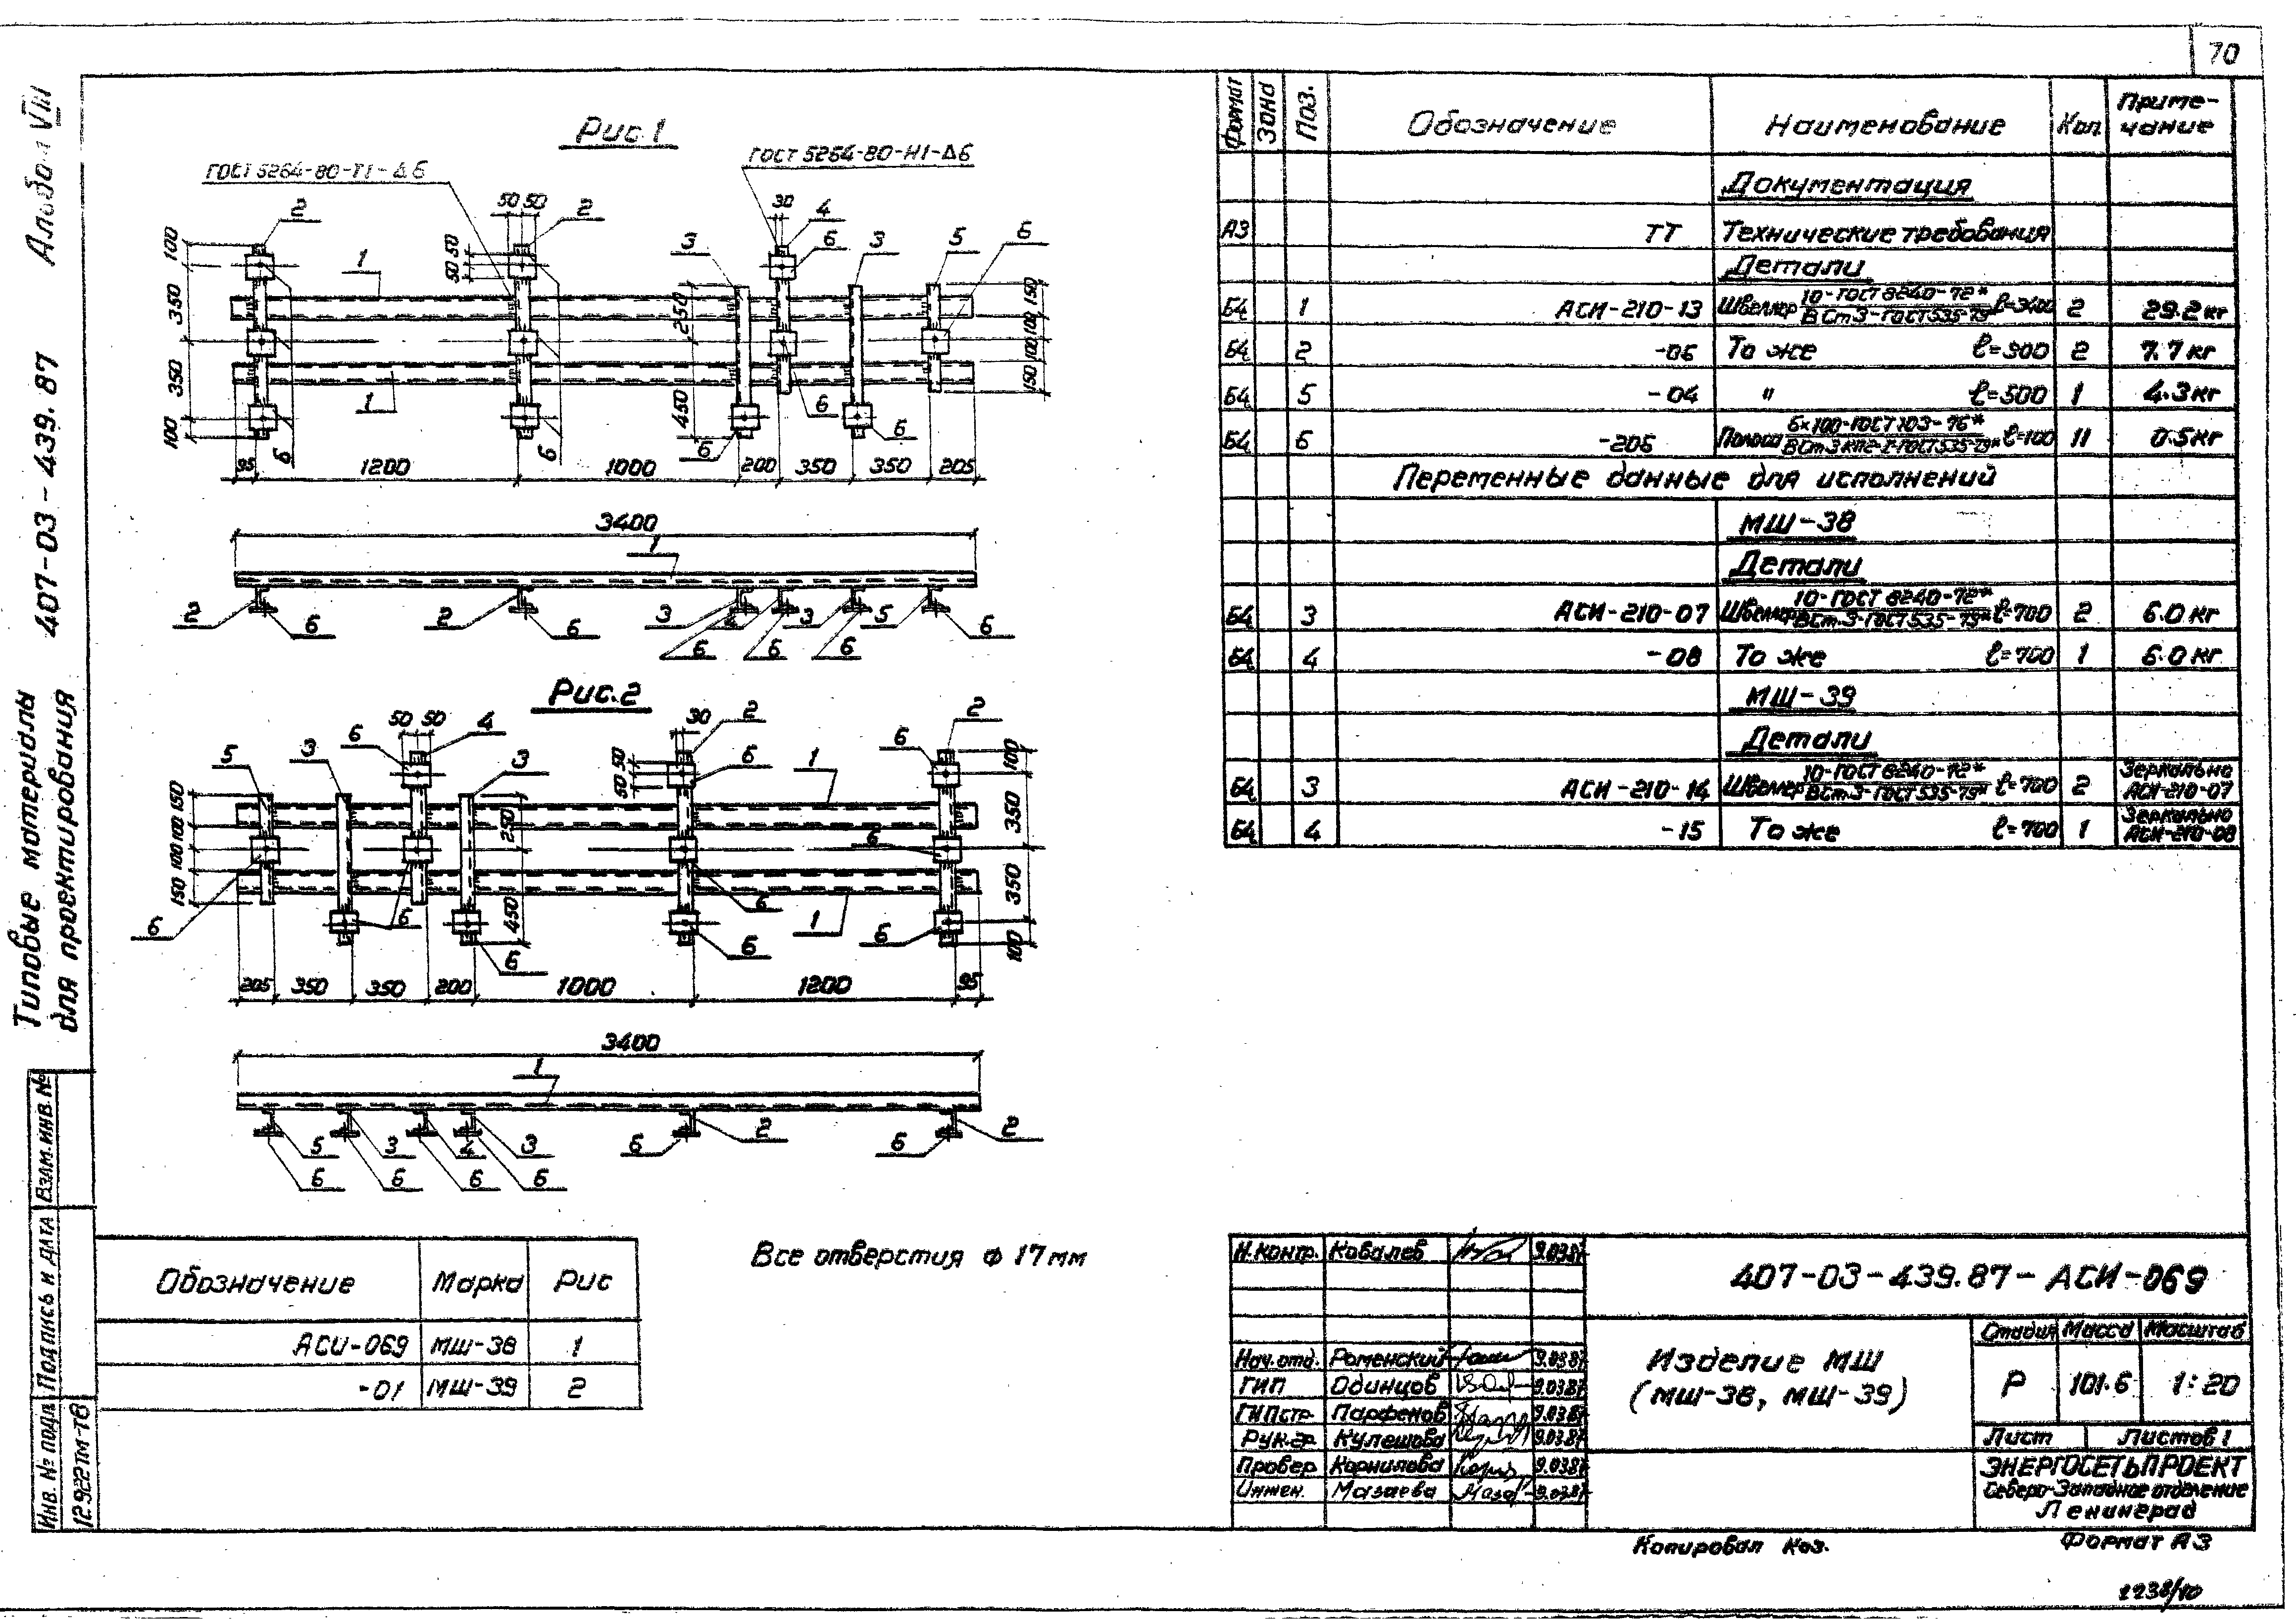 70
Альбом VIII
407-03-439.87
Типовые материалы
для проектирования
Рис.1
ГОСТ 5264-80-Т1-Δ6
ГОСТ 5264-80-Н1-Δ6
2
50 50
2
30
4
6
3
3
5
6
100
350
350
100
1
1
50 50
250
450
150
100
100
150
6
6
6
6
6
95
1200
1000
200
350
350
205
3400
1
2
6
2
6
3
4
3
5
6
6
6
6
Рис.2
50 50
4
6
3
5
3
30
2
6
1
2
6
50 50
150
100
100
150
250
450
100
350
350
100
6
6
6
6
6
6
6
1
205
350
350
200
1000
1200
95
3400
1
5
3
4
3
6
2
6
2
6
6
6
6
Все отверстия ф 17мм
Обозначение Марка Рис
АСИ-069 МШ-38 1
-01 МШ-39 2
Формат Зона Поз. Обозначение Наименование Кол. Приме-
чание
Документация
А3 ТТ Технические требования
Детали
БЧ 1 АСИ-210-13 Швеллер 10-ГОСТ 8240-72* / ВСт3-ГОСТ 535-79* ℓ=3400 2 29.2 кг
БЧ 2 -06 То же ℓ=900 2 7.7 кг
БЧ 5 -04 " ℓ=500 1 4.3 кг
БЧ 6 -206 Полоса 6×100-ГОСТ 103-76* / ВСт.3кп2-I-ГОСТ 535-79* ℓ=100 11 0.5 кг
Переменные данные для исполнений
МШ-38
Детали
БЧ 3 АСИ-210-07 Швеллер 10-ГОСТ 8240-72* / ВСт.3-ГОСТ 535-79* ℓ=700 2 6.0 кг
БЧ 4 -08 То же ℓ=700 1 6.0 кг
МШ-39
Детали
БЧ 3 АСИ-210-14 Швеллер 10-ГОСТ 8240-72* / ВСт.3-ГОСТ 535-79* ℓ=700 2 Зеркально АСИ-210-07
БЧ 4 -15 То же ℓ=700 1 Зеркально АСИ-210-08
Н.контр. Ковалев 9.03.87
Нач.отд. Роменский 9.03.87
ГИП Одинцов 9.03.87
ГИПстр. Парфенов 9.03.87
Рук.гр. Кулешова 9.03.87
Провер. Корнилова 9.03.87
Инжен. Мазаева 9.03.87
407-03-439.87-АСИ-069
Изделие МШ
(МШ-38, МШ-39)
Стадия Масса Масштаб
Р 101.6 1:20
Лист Листов 1
ЭНЕРГОСЕТЬПРОЕКТ
Северо-Западное отделение
Ленинград
Копировал Коз. Формат А3
Инв. № подл. Подпись и дата Взам.инв.№
12922тм-т8